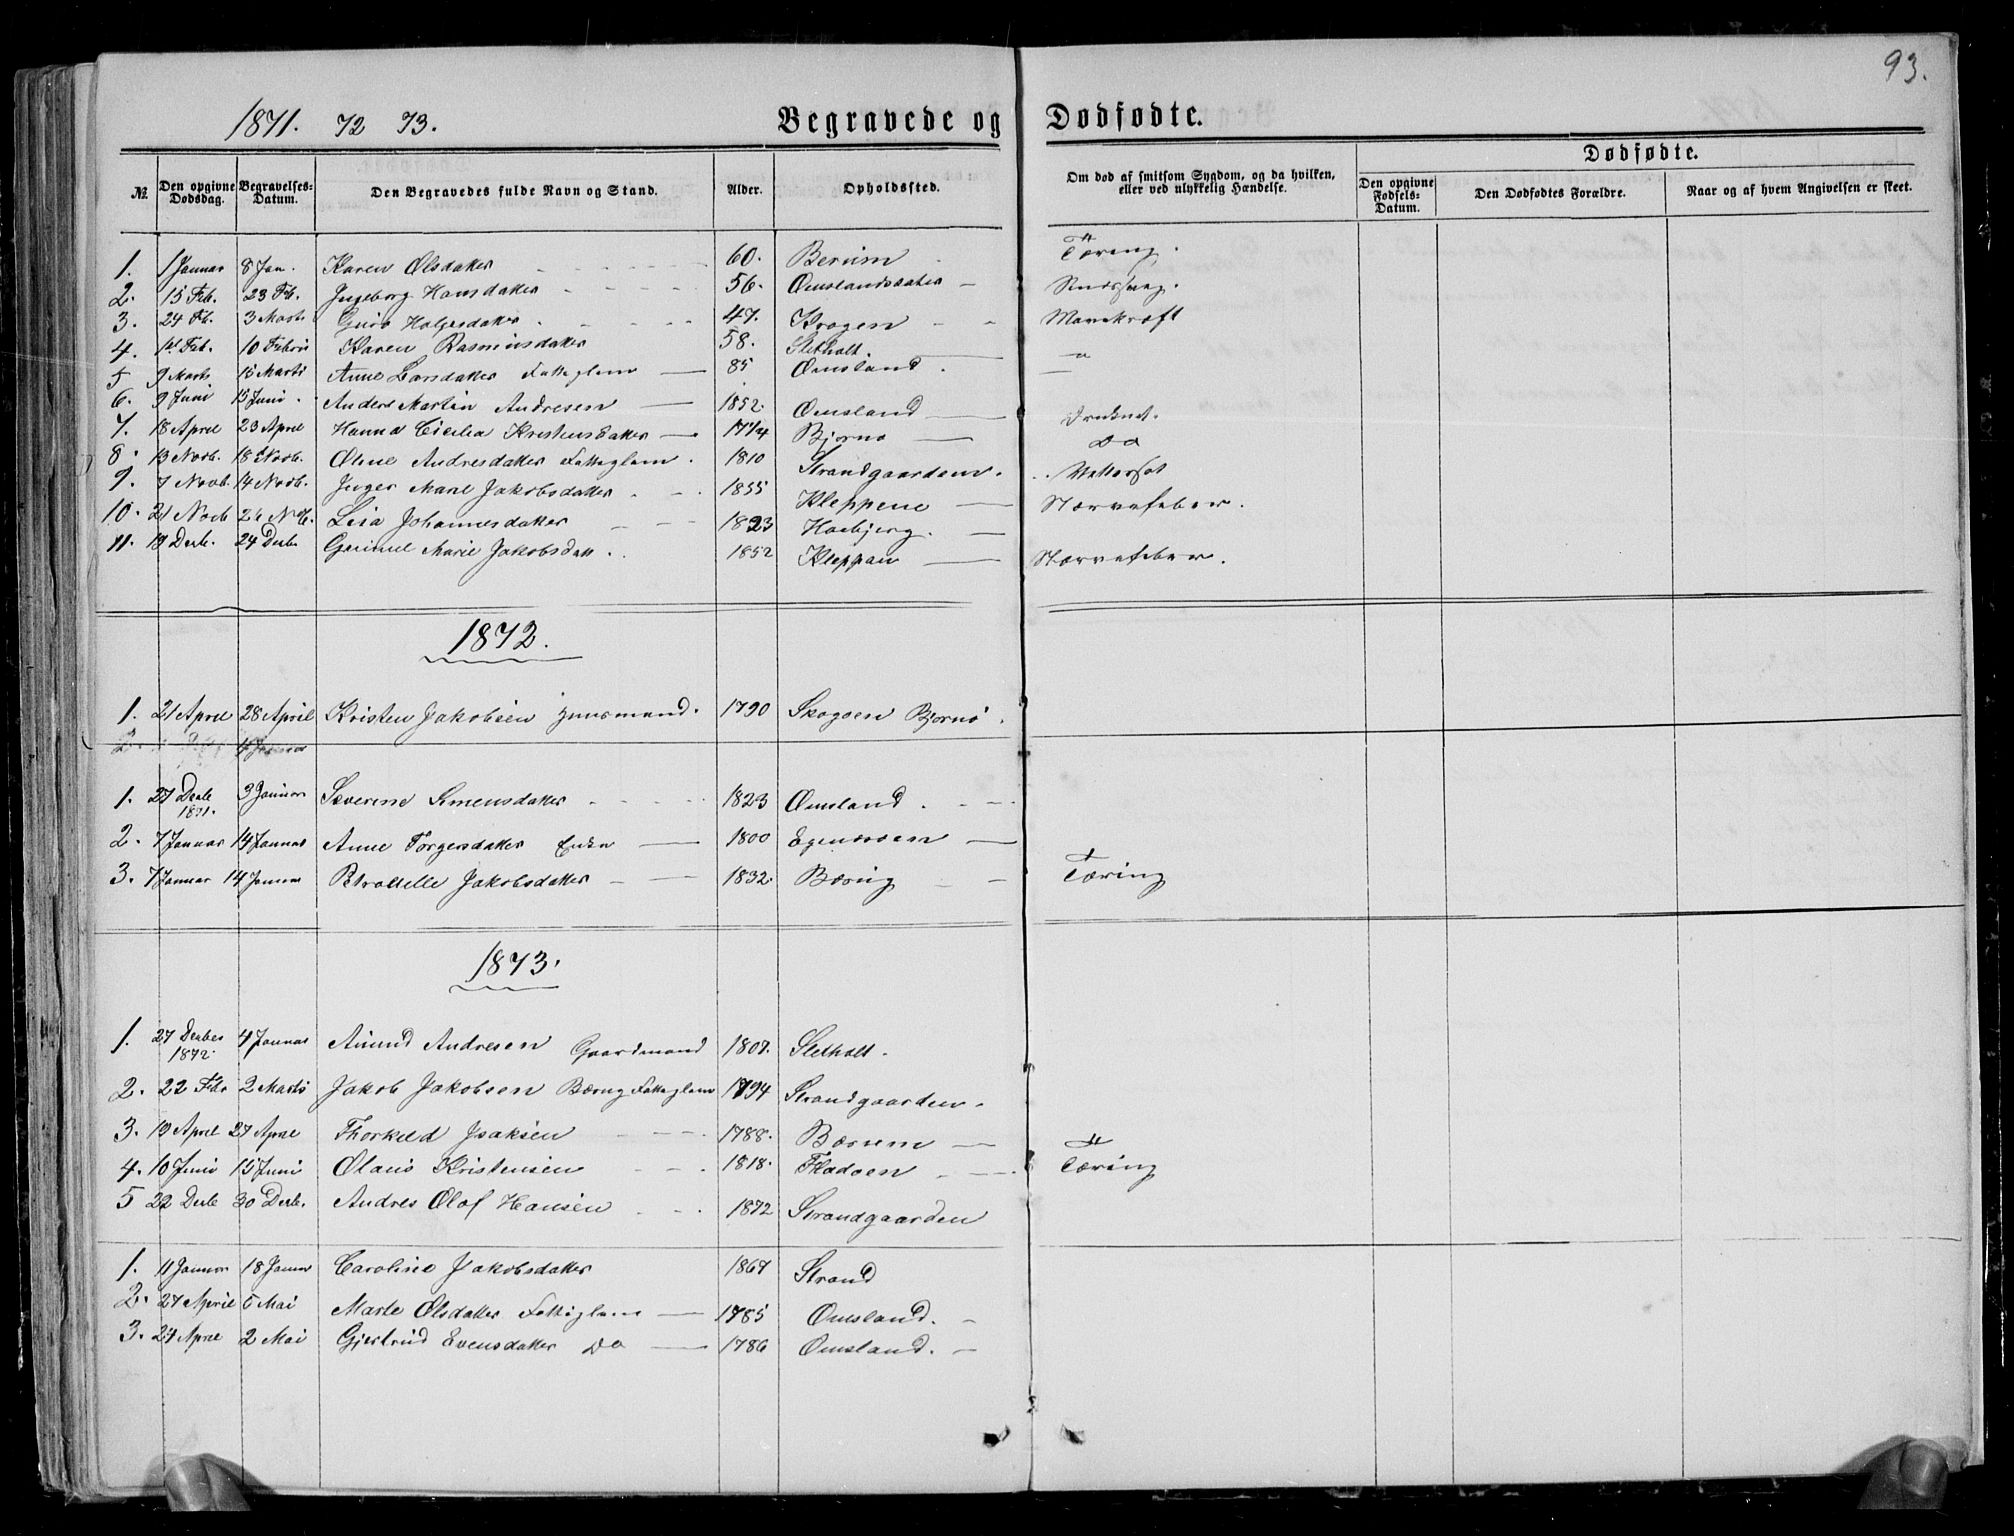 93.
1871. 72 73. Begravede og Dødfødte.
№ Den opgivne Dødsdag. Begravelses-Datum. Den Begravedes fulde Navn og Stand. Alder. Opholdssted. Om død af smitsom Sygdom, og da hvilken, eller ved ulykkelig Hændelse. Dødfødte. Den opgivne Fødsels-Datum. Den Dødfødtes Forældre. Naar og af hvem Angivelsen er skeet.
1. 1 Januar 8 Jan. Karen Olsdatter 60. Berüm Tæring.
2. 15 Feb. 23 Fb. Ingeborg Hansdatter 56. Omslandssæter
3. 24 Fb. 3 Marts Guro Holgersdatter 47. Krogen Mavekræft
4. 1st Feb. 10 Februar Karen Rasmusdatter 58. Sletholt.
5 9 Marts 15 Marts Anne Larsdatter Fattiglem 85 Omsland.
6. 9 Juni 15 Juni. Anders Martin Andresen 1852. Omsland Druknet.
7. 18 April 23 April Hanna Cicilia Kristensdatter Bjørnø Do
8. 13 Novb. 18 Novb. Oline Andresdatter Fattiglem. 1810 Strandgaarden. Vattersot
9. 7 Novb. 14 Novb. Inger Marie Jakobsdatter 1855 Kleppene Nervefeber.
10. 21 Novb 26 Nvb. Lisa Johannesdatter 1823 Haabjerg.
11. 19 Decb. 24 Decb Gurine Marie Jakobsdatt.. 1852 Kleppan Nervefeber.
1872.
1. 21 April 28 April Kristen Jakobsen Huusmand. 1790 Skogoen Bjornö.
2. 4 Januar
1. 27 Decb 1871. 3 Januar Severine Simensdatter 1823 Omsland.
2. 7 Januar 14 Januar Anne Torgersdatter Enke 1800
3. 7 Januar 14 Januar Petronelle Jakobsdatter 1832. Bæring Tæring
1873.
1. 27 Decber 1872. 4 Januar Amund Andresen Gaardmand 1807. Sletholt.
2. 22 Febr 2 Marts Jakob Jakobsen Bæring Fattiglem 1794 Strandgaarden.
3. 19 April 27 April Thorkild Isaksen 1788. Bærrem
4. 10 Juni 15 Juni Olaus Kristensen 1818. Fladoen Tæring
5 22 Decb 30 Decb. Andres Olof Hansen 1872 Strandgaarden
1. 11 Januar 18 Januar Caroline Jakobsdatter 1867 Strand
2. 27 April 5 Mai Marte Olsdatter Fattiglem 1785 Omsland.
3. 27 April 2 Mai Gjertrud Evensdatter Do 1786 Omsland.